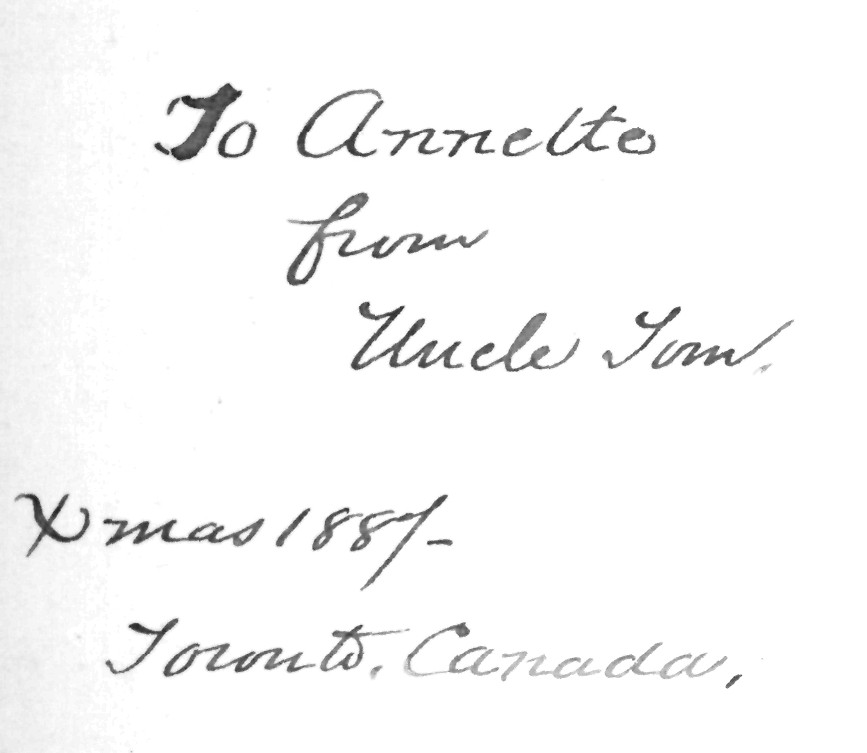 To Annette
from
Uncle Tom.
Xmas 1887-
Toronto. Canada,